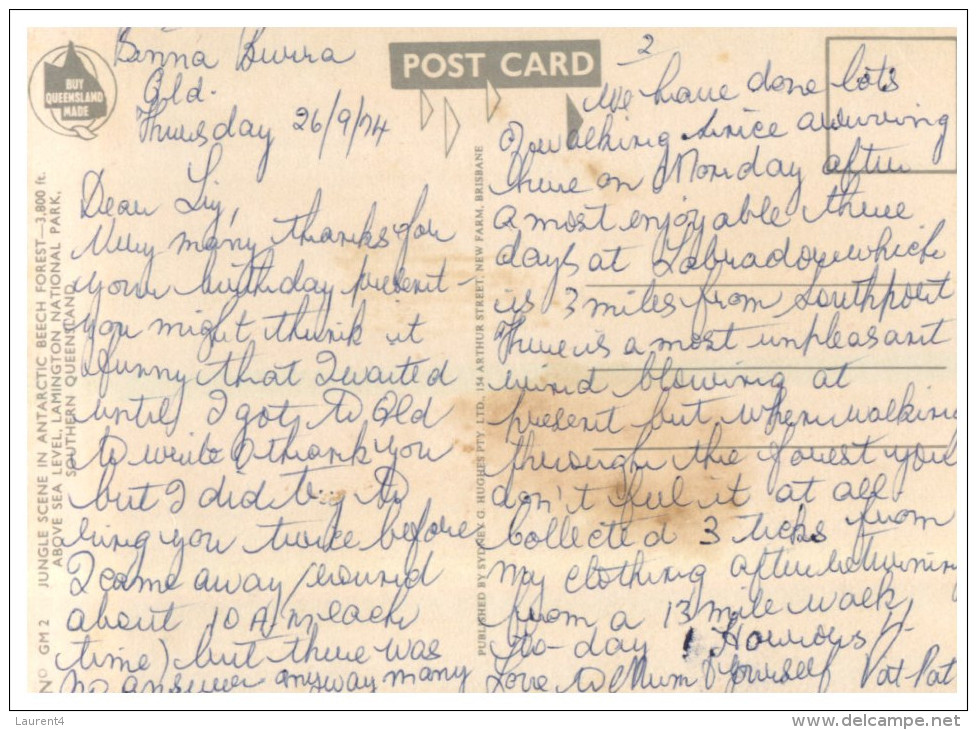 Binna Burra
Qld.
Thursday 26/9/74
Dear Liz,
Very many thanks for
your birthday present -
you might think it
funny that I waited
until I got to Qld
to write & thank you
but I did try to
ring you twice before
I came away (around
about 10 A.M. each
time) but there was
no answer anyway many
BUY
QUEENSLAND
MADE
POST CARD
2
We have done lots
of walking since arriving
here on Monday after
a most enjoyable three
days at Labrador which
is 3 miles from Southport
There is a most unpleasant
wind blowing at
present but when walking
through the forest you
don't feel it at all.
Collected 3 ticks from
my clothing after returning
from a 13 mile walk
to-day ! Horrors !!
Love to Mum & Yourself Pat
N° GM 2 JUNGLE SCENE IN ANTARCTIC BEECH FOREST—3,800 ft.
ABOVE SEA LEVEL, LAMINGTON NATIONAL PARK,
SOUTHERN QUEENSLAND.
PUBLISHED BY SYDNEY G. HUGHES PTY. LTD., 154 ARTHUR STREET, NEW FARM, BRISBANE
Laurent4
www.delcampe.net